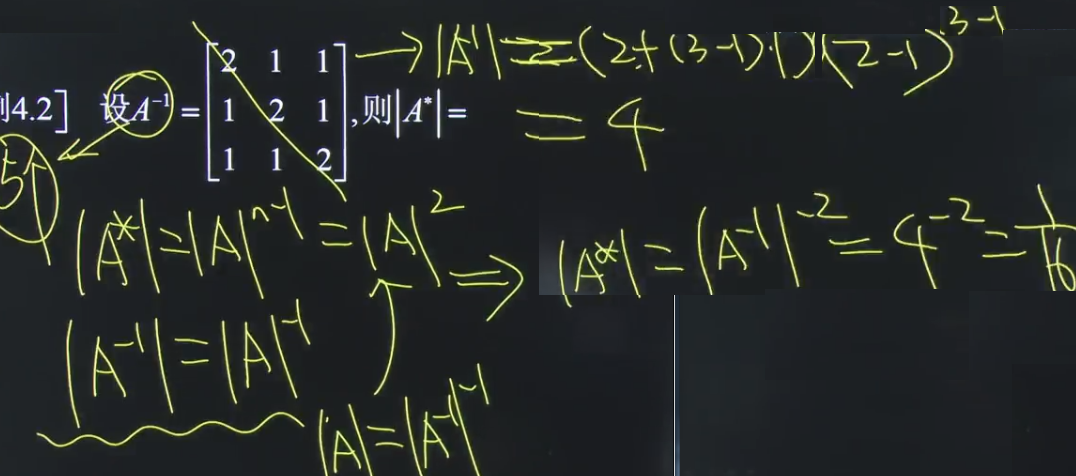 例4.2] 设A⁻¹ = [2 1 1; 1 2 1; 1 1 2], 则|A*| =
→ |A⁻¹| = (2+(3-1)·1)(2-1)³⁻¹
= 4
|A*| = |A|ⁿ⁻¹ = |A|² ⇒ |A*| = |A⁻¹|⁻² = 4⁻² = 1/16
|A⁻¹| = |A|⁻¹
|A| = |A⁻¹|⁻¹